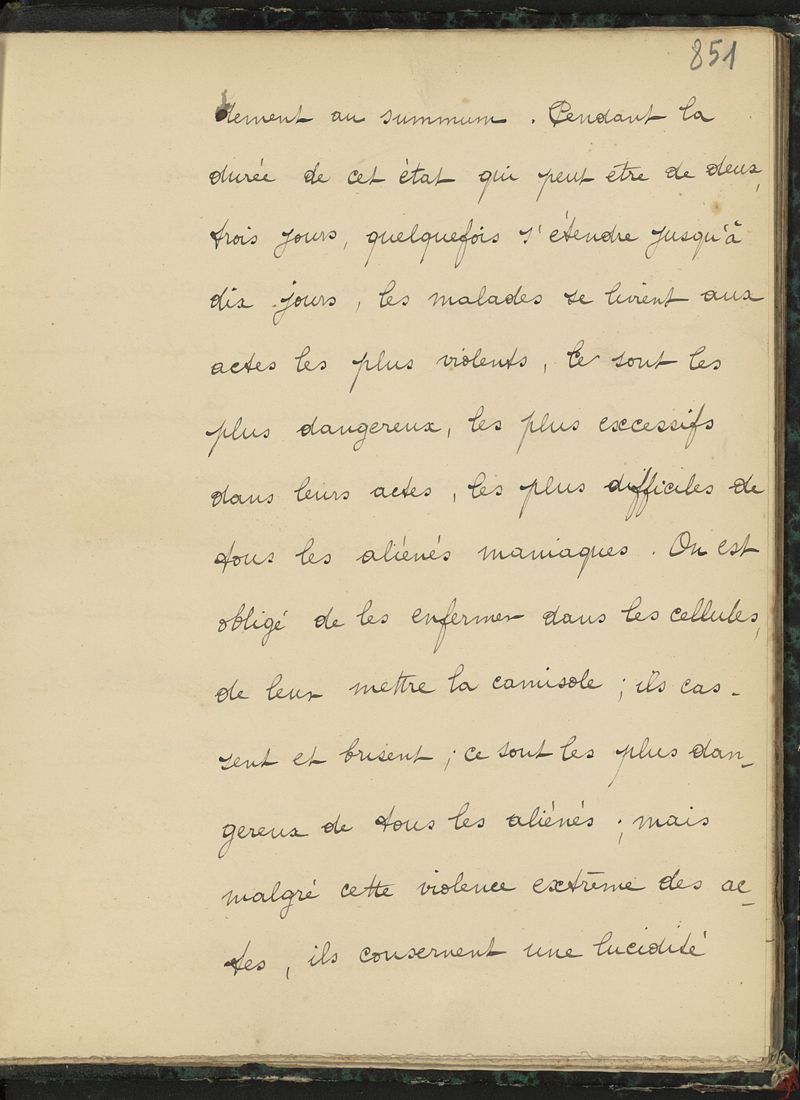 851
dement au summum. Pendant la
durée de cet état qui peut etre de deux,
trois jours, quelquefois s'étendre jusqu'à
dix jours, les malades se livrent aux
actes les plus violents, ce sont les
plus dangereux, les plus excessifs
dans leurs actes, les plus difficiles de
tous les aliénés maniaques. On est
obligé de les enfermer dans les cellules,
de leur mettre la camisole; ils cas-
sent et brisent; ce sont les plus dan-
gereux de tous les aliénés; mais
malgré cette violence extrême des ac-
tes, ils conservent une lucidité